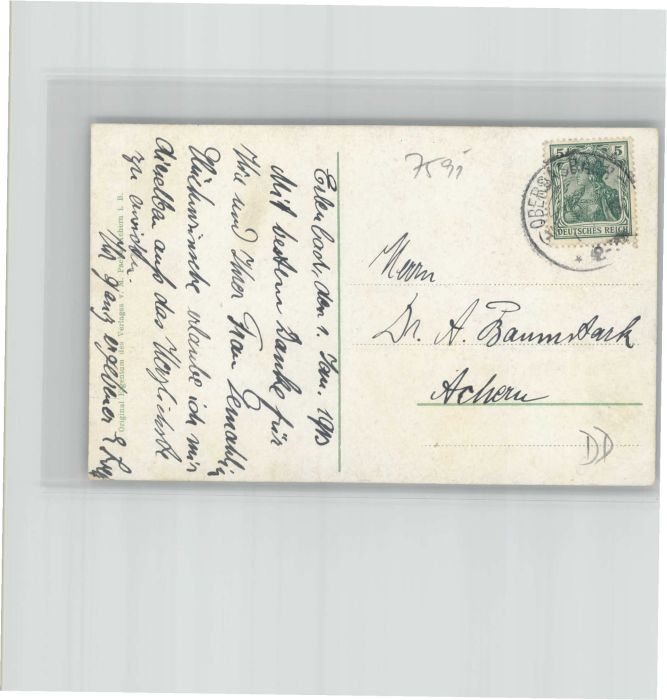 Erlenbad, den 1. Jan. 1913
Mit bestem Danke für
Ihre und Ihrer Frau Gemahlin
Glückwünsche erlaube ich mir
dieselben auf das Herzlichste
zu erwidern.
Ihr ganz ergebener
Original Eigentum des Verlages v. M. Achern i. B.
7591
5 5
DEUTSCHES REICH
OBERSASBACH
Herrn
Dr. A. Baumstark
Achern